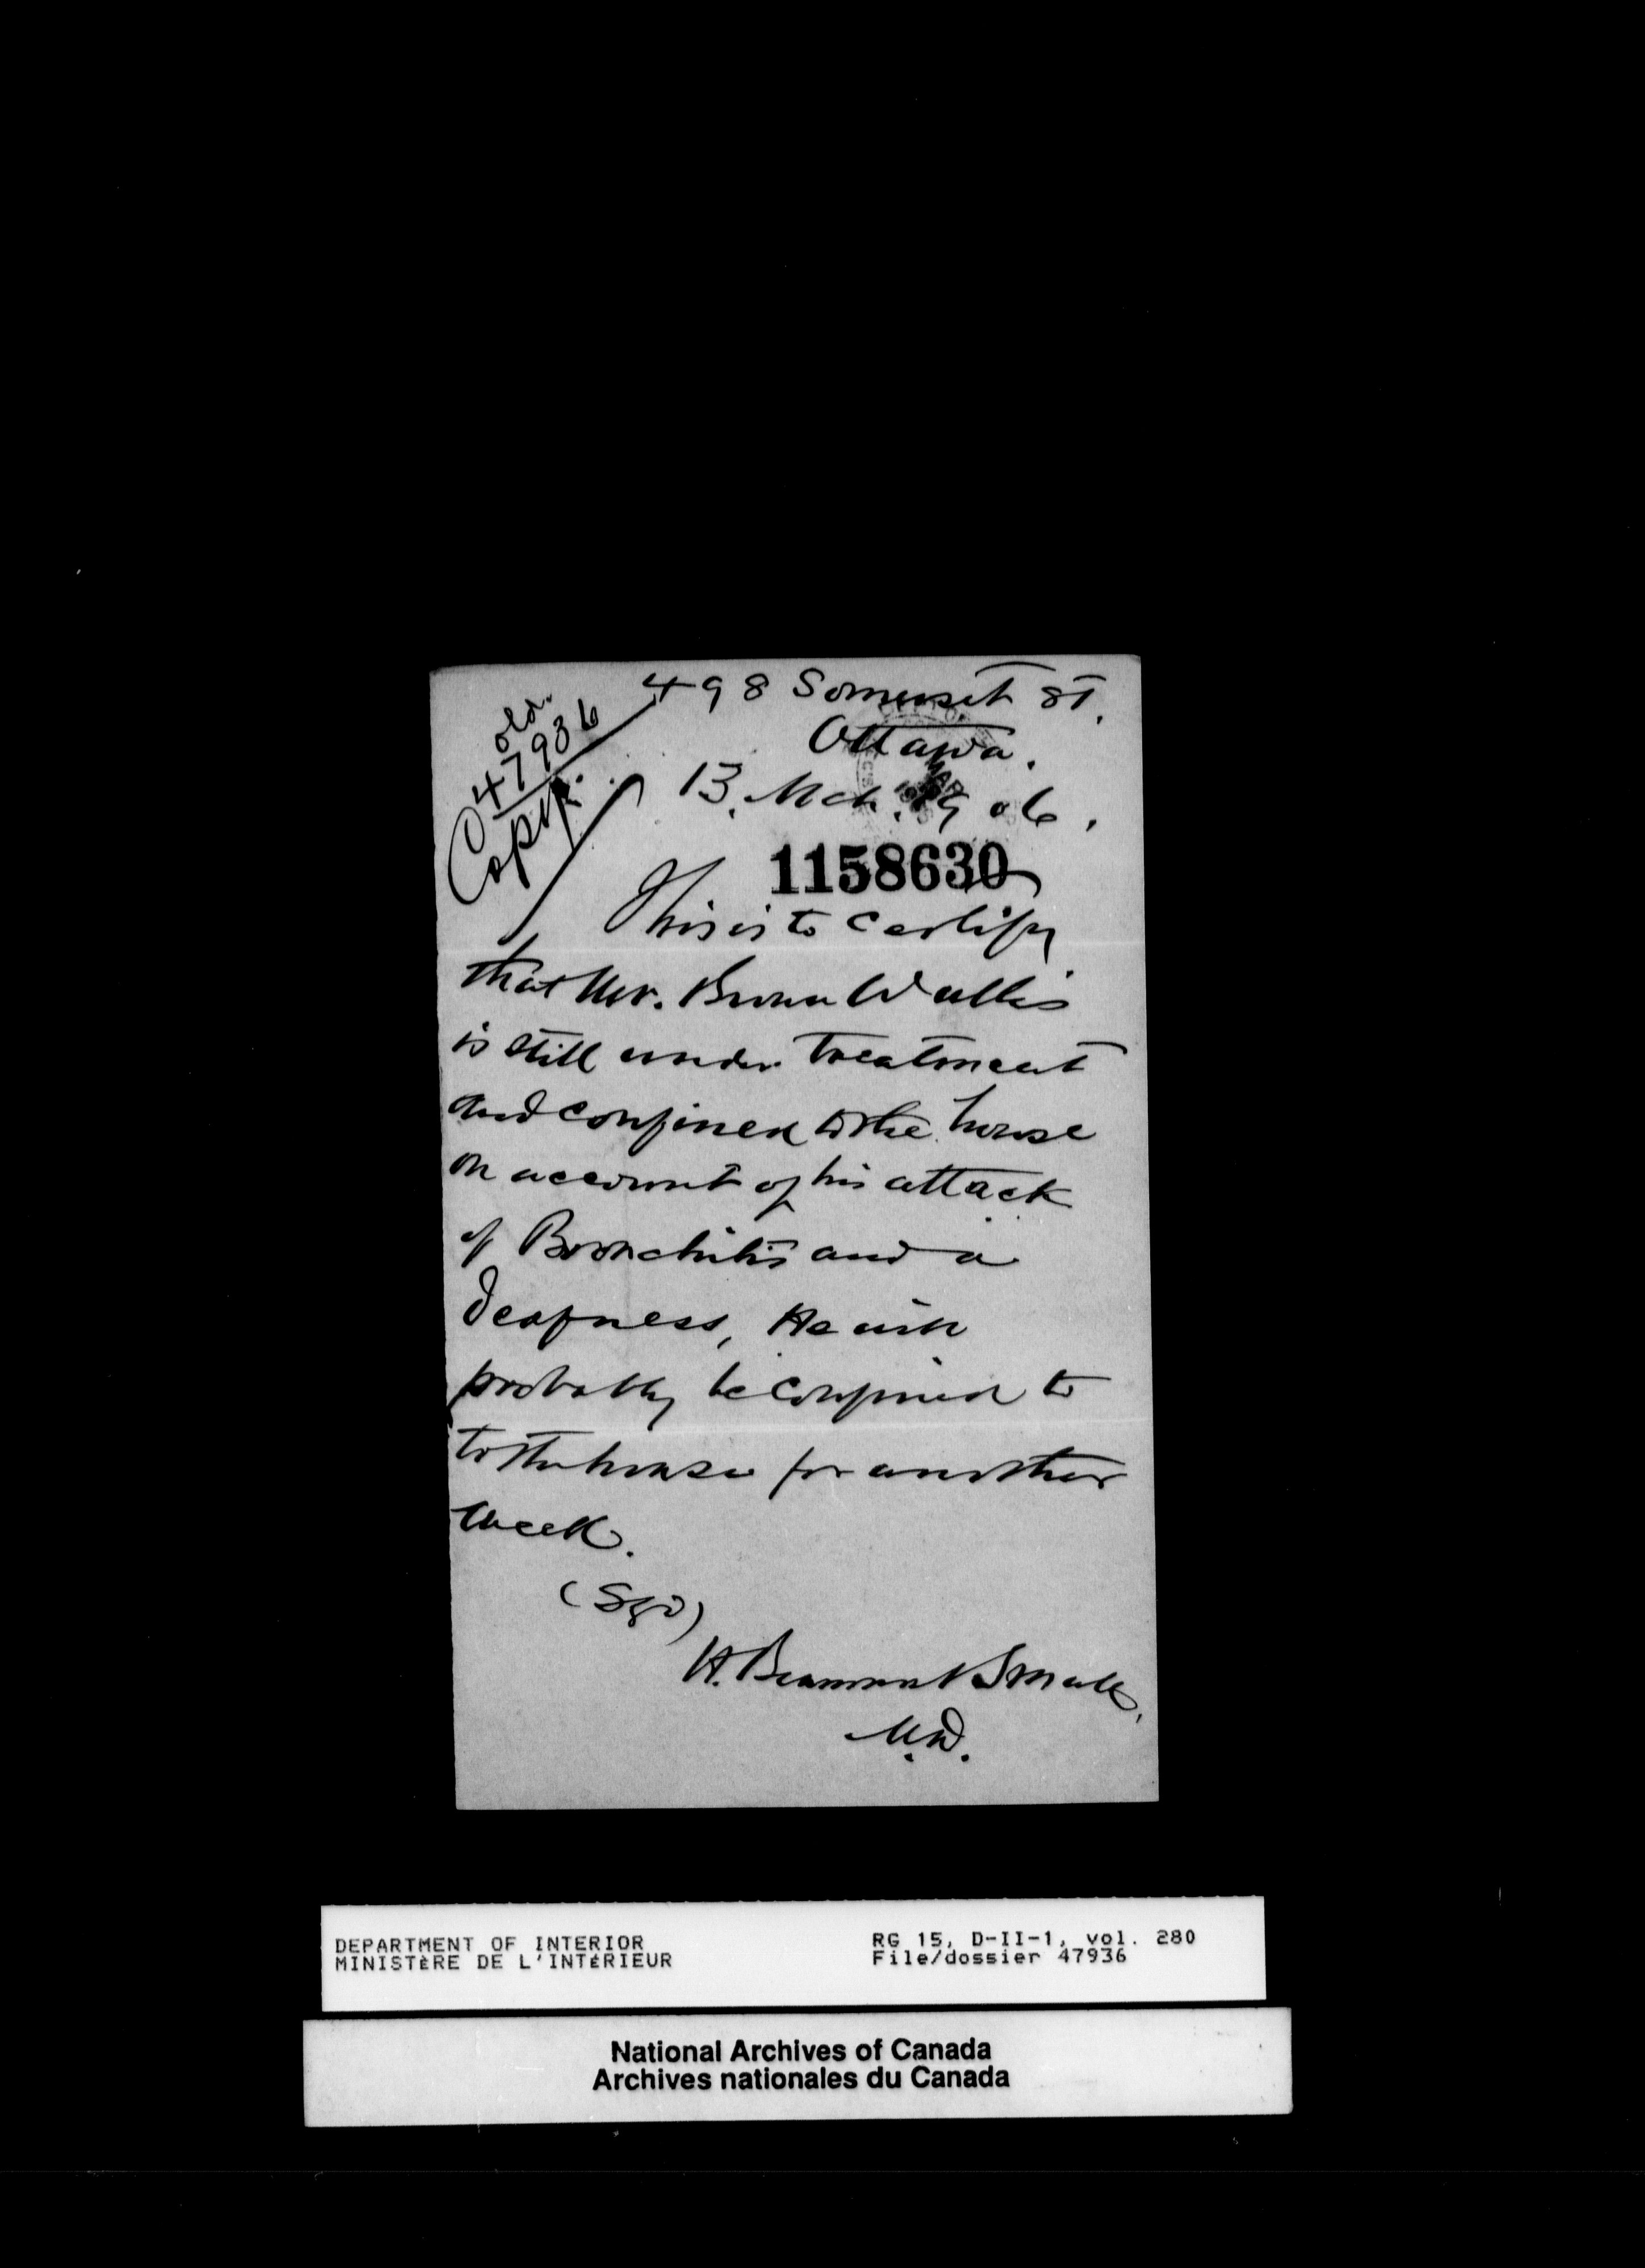 498 Somerset St.
Ottawa.
old.
47936
Copy.
13. Mch. 1906.
1158630
This is to certify
that Mr. Brown Wallis
is still under treatment
and confined to the house
on account of his attack
of Bronchitis and a
deafness, He will
probably be confined to
to the house for another
week.
(Sgd)
H. Beaumont Small,
M.D.
DEPARTMENT OF INTERIOR
MINISTÈRE DE L'INTÉRIEUR
RG 15, D-II-1, vol. 280
File/dossier 47936
National Archives of Canada
Archives nationales du Canada